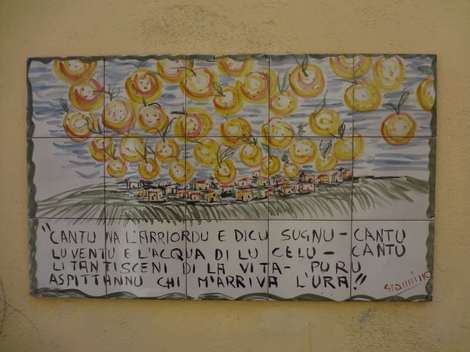 "CANTU NA L'ARRIORDU E DICU SUGNU - CANTU
LU VENTU E L'ACQUA DI LU CELU - CANTU
LI TANTI SCENI DI LA VITA - PURU
ASPITTANNU CHI M'ARRIVA L'URA!!